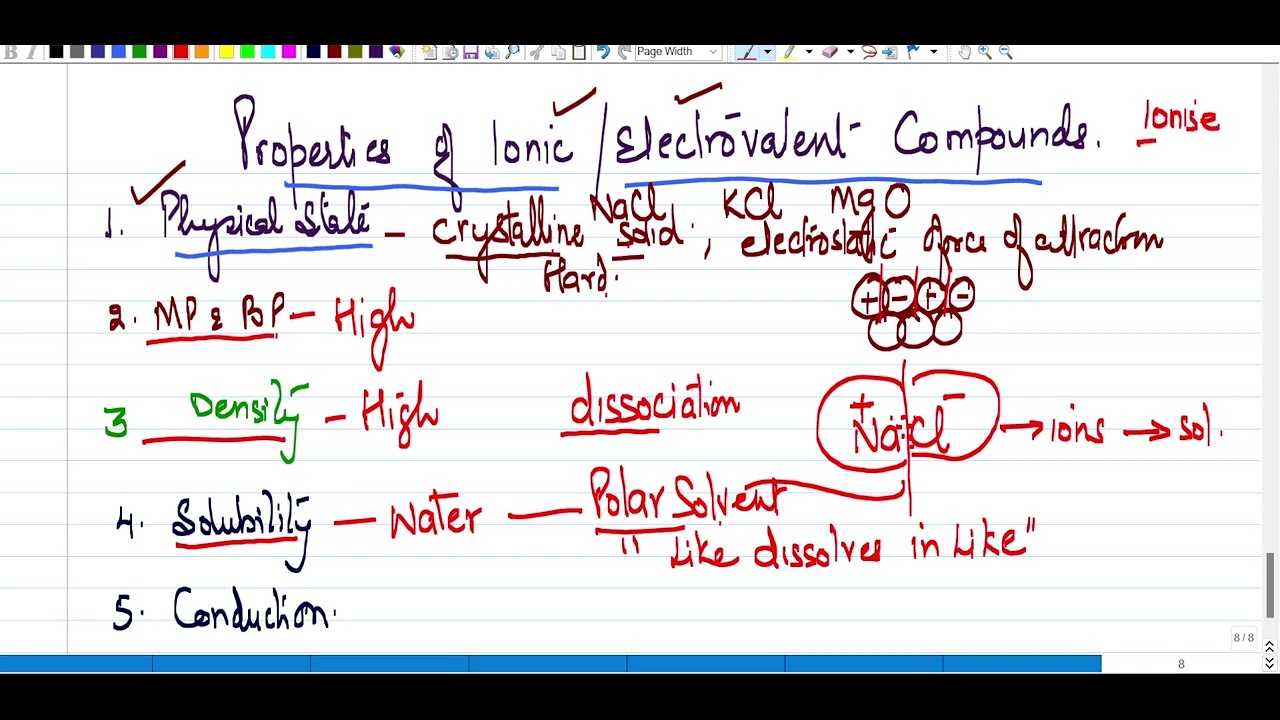 B I Page Width
Properties of Ionic / Electrovalent Compounds. Ionise
NaCl KCl MgO
1. Physical State - crystalline solid, electrostatic force of attraction
Hard.
+ - + -
2. MP & BP - High
3 Density - High dissociation Na+ : Cl- → ions → sol.
4. Solubility - Water - Polar Solvent
" Like dissolves in Like"
5. Conduction.
8 / 8
8